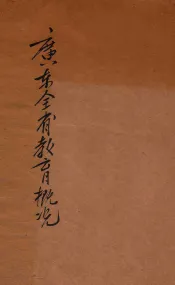 廣东全省教育概况